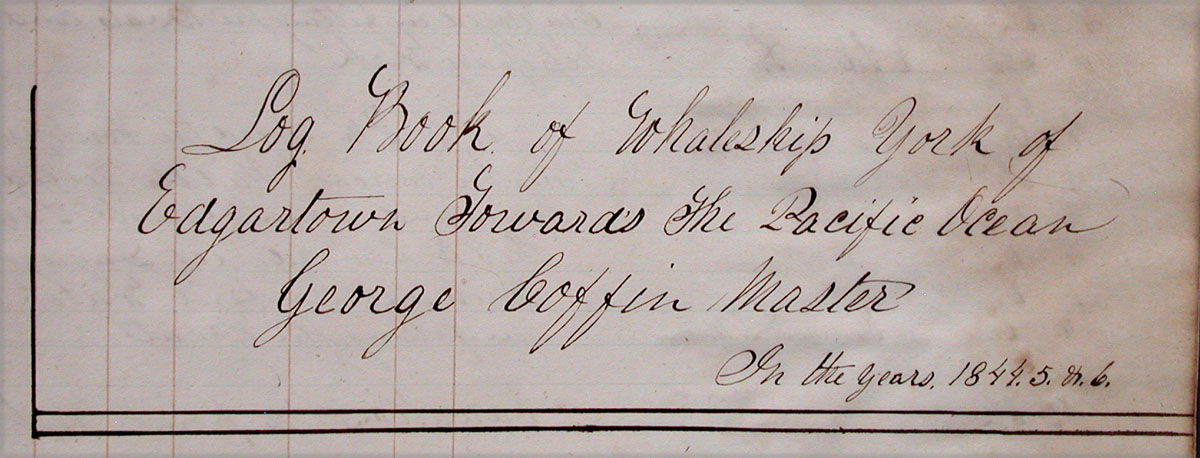 Log Book of Whaleship York of
Edgartown Towards The Pacific Ocean
George Coffin Master
In the years, 1844. 5. &. 6.